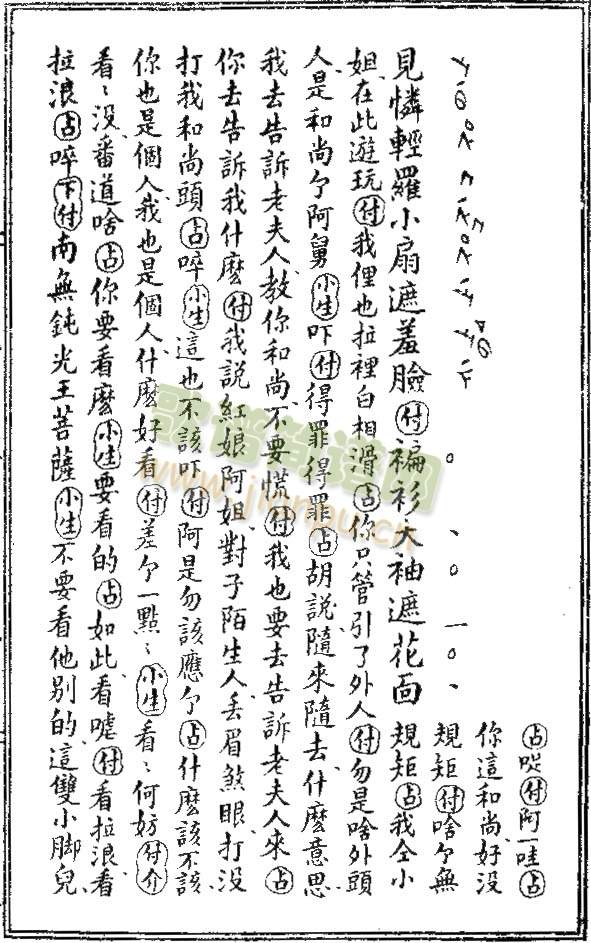 見憐輕羅小扇遮羞臉付褊衫大袖遮花面
占付阿一哇占
你這和尚好没
規矩付啥个無
規矩占我仝小
姐在此遊玩付我俚也拉裡白相滑占你只管引了外人付勿是啥外頭
人是和尚个阿舅小生吓付得罪得罪占胡說隨來隨去什麽意思
我去告訴老夫人教你和尚不要慌付我也要去告訴老夫人來占
你去告訴我什麽付我說紅娘阿姐對子陌生人丢眉煞眼打没
打我和尚頭占啐小生這也不該吓付阿是勿該應个占什麽該不該
你也是個人我也是個人什麽好看付差个一點〻小生看〻何妨付介
看〻没番道啥占你要看麽小生要看的占如此看嘘付看拉浪看
拉浪占啐下付南無鈍光王菩薩小生不要看他别的這雙小脚兒
歌谱简谱网
www.jianpu.cn